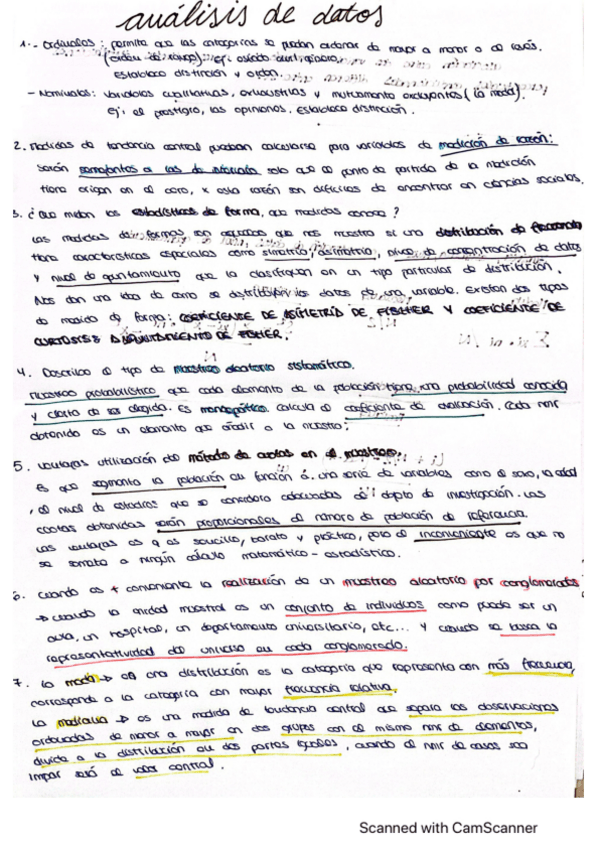 análisis de datos
1.- Ordinales: permite que las categorías se puedan ordenar de mayor a menor o al revés.
(orden de rango). Ej: estado civil, género,
Establece distinción y orden.
- Nominales: variables cualitativas, exhaustivas y mutuamente excluyentes (la moda).
ej: el prestigio, las opiniones. Establece distinción.
2. Medidas de tendencia central pueden calcularse para variables de medición de razón:
Serán semejantes a las de intervalo solo que el punto de partida de la medición
tiene origen en el cero, x esta razón son difíciles de encontrar en ciencias sociales.
3. ¿Que miden los estadísticos de forma, que medidas conoce?
Las medidas de formas son aquellas que nos muestra si una distribución de frecuencia
tiene características especiales como simetría, asimetría, nivel de concentración de datos
y nivel de apuntamiento que la clasifiquen en un tipo particular de distribución.
Nos dan una idea de como se distribuyen los datos de una variable. Existen dos tipos
de medida de forma: COEFICIENTE DE ASIMETRÍA DE FISHER Y COEFICIENTE DE
CURTOSIS Ó APUNTAMIENTO DE FISHER.
4. Describe el tipo de muestreo aleatorio sistemático.
muestreo probabilístico que cada elemento de la población tiene una probabilidad conocida
y cierta de ser elegida. Es monogético. calcula el coeficiente de elevación. Cada nmr
obtenido es un elemento que añadir a la muestra;
5. ventajas utilización del método de cuotas en el muestreo,
Es que segmenta la población en función a una serie de variables como el sexo, la edad
, el nivel de estudios que se considera adecuadas al objeto de investigación. Las
cuotas obtenidas serán proporcionales al número de población de referencia.
Las ventajas es q es sencillo, barato y práctico, pero el inconveniente es que no
se somete a ningún cálculo matemático-estadístico.
6. cuando es + conveniente la realización de un muestreo aleatorio por conglomerados
→ cuando la unidad muestral es un conjunto de individuos como puede ser un
aula, un hospital, un departamento universitario, etc... y cuando se busca la
representatividad del universo en cada conglomerado.
7. La moda → en una distribución es la categoría que representa con más frecuencia,
corresponde a la categoría con mayor frecuencia relativa.
La mediana → es una medida de tendencia central que separa las observaciones
ordenadas de menor a mayor en dos grupos con el mismo nmr de elementos,
divide a la distribución en dos partes iguales, cuando el nmr de casos sea
impar será el valor central.
Scanned with CamScanner